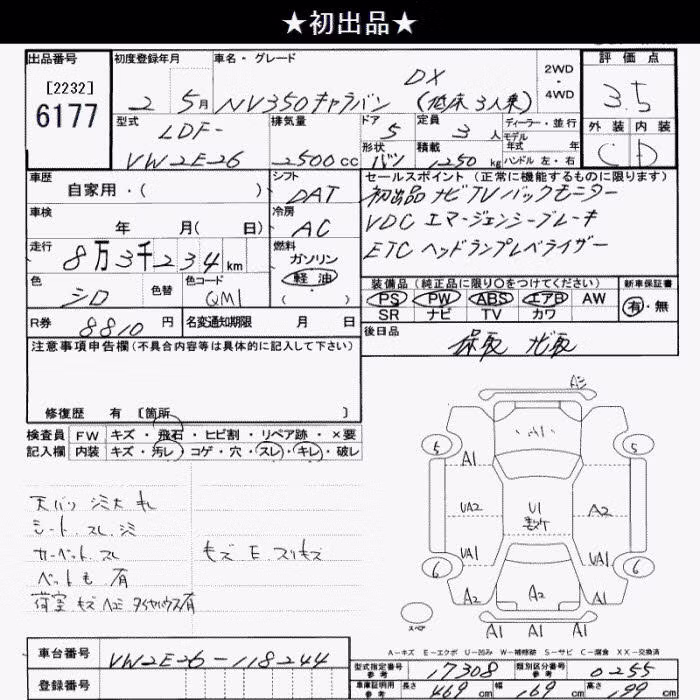 ★初出品★
出品番号
[2232]
6177
初度登録年月
2 5月
車名・グレード
NV350キャラバン
DX
(低床 3人乗)
2WD
・
4WD
評価点
3.5
外装 内装
C D
型式
LDF-
VW2E26
排気量
2500cc
ドア
5
形状
バン
定員
3人
積載
1250kg
ディーラー・並行
モデル
年式 年
ハンドル 左・右
車歴
自家用・( )
シフト
DAT
車検
年 月( 日)
冷房
AC
走行
8万3千234km
燃料
ガソリン
軽油
( )
色
シロ
色替
色コード
QM1
R券
8810円
名変通知期限 月 日
セールスポイント(正常に機能するものに限ります)
初出品 ナビTVバックモニター
VDC エマージェンシーブレーキ
ETC ヘッドランプレベライザー
装備品(純正品に限り○をつけてください)
PS PW ABS エアB AW
SR ナビ TV カワ
新車保証書
有・無
後日品
保取 ナビ取
注意事項申告欄(不具合内容等は具体的に記入して下さい)
修復歴 有 〔箇所 〕
検査員
記入欄
FW キズ・飛石・ヒビ割・リペア跡・×要
内装 キズ・汚レ・コゲ・穴・スレ・キレ・破レ
シート スレ
カーペット スレ
ベットも 有
荷室 キズ ヘコミ タイヤハウス有
キズ E スリキズ
A3
A1
5 5
A1
UA2 U1 A2
UA1 UA1
6 6
A2 A2 A2
スペア
A1 A1 A1
A-キズ E-エクボ U-凹み W-補修跡 S-サビ C-腐食 XX-交換済
車台番号
VW2E26-118244
登録番号
型式指定番号
参考
17308
類別区分番号
参考
0255
車庫証明用
参考
長さ 469cm 幅 169cm 高さ 199cm